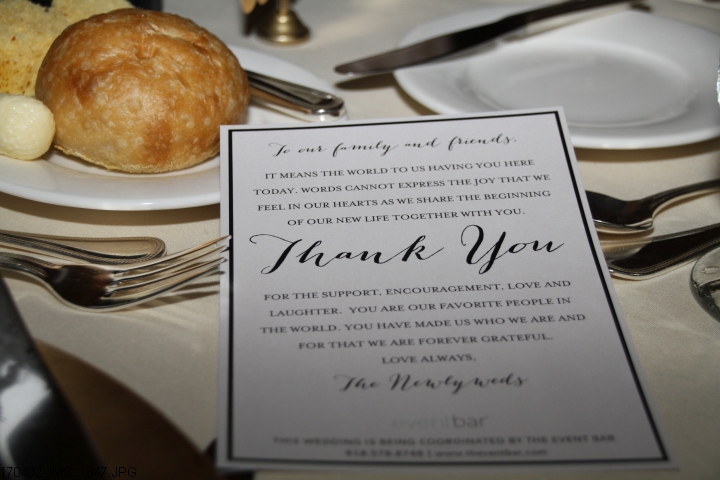 To our family and friends,
IT MEANS THE WORLD TO US HAVING YOU HERE
TODAY. WORDS CANNOT EXPRESS THE JOY THAT WE
FEEL IN OUR HEARTS AS WE SHARE THE BEGINNING
OF OUR NEW LIFE TOGETHER WITH YOU.
Thank You
FOR THE SUPPORT, ENCOURAGEMENT, LOVE AND
LAUGHTER. YOU ARE OUR FAVORITE PEOPLE IN
THE WORLD. YOU HAVE MADE US WHO WE ARE AND
FOR THAT WE ARE FOREVER GRATEFUL.
LOVE ALWAYS,
The Newlyweds
eventbar
THIS WEDDING IS BEING COORDINATED BY THE EVENT BAR
www.theeventbar.com